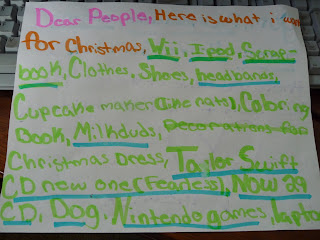 Dear People, Here is what i want
for Christmas, Wii, Ipod, Scrap-
book, Clothes, Shoes, headbands,
Cupcake maker (like nats), Coloring
Book, Milkduds, Decorations for
Christmas Dress, Taylor Swift
CD new one (Fearless), NOW 29
CD, Dog, Nintendo games, laptop